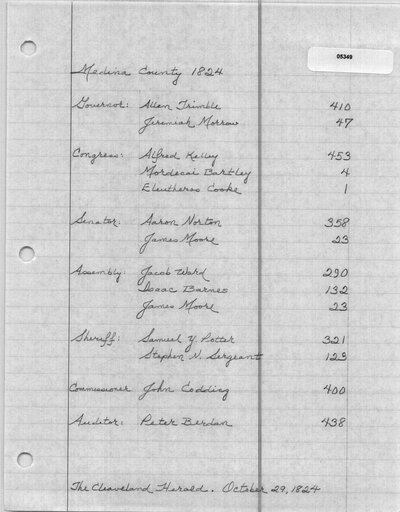 05349
Medina County 1824
Governor: Allen Trimble 410
Jeremiah Morrow 47
Congress: Alfred Kelley 453
Mordecai Bartley 4
Eleutheros Cooke 1
Senator: Aaron Norton 358
James Moore 23
Assembly: Jacob Ward 290
Isaac Barnes 132
James Moore 23
Sheriff: Samuel Y. Potter 321
Stephen N. Sergeant 123
Commissioner John Codding 400
Auditor: Peter Berdan 438
The Cleaveland Herald. October 29, 1824